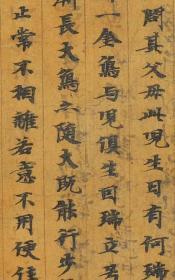 問其父母此兒生日有何瑞
一金象与兒俱生因瑞立号
漸長大象亦随大既能行步
止常不相離若意不用便住